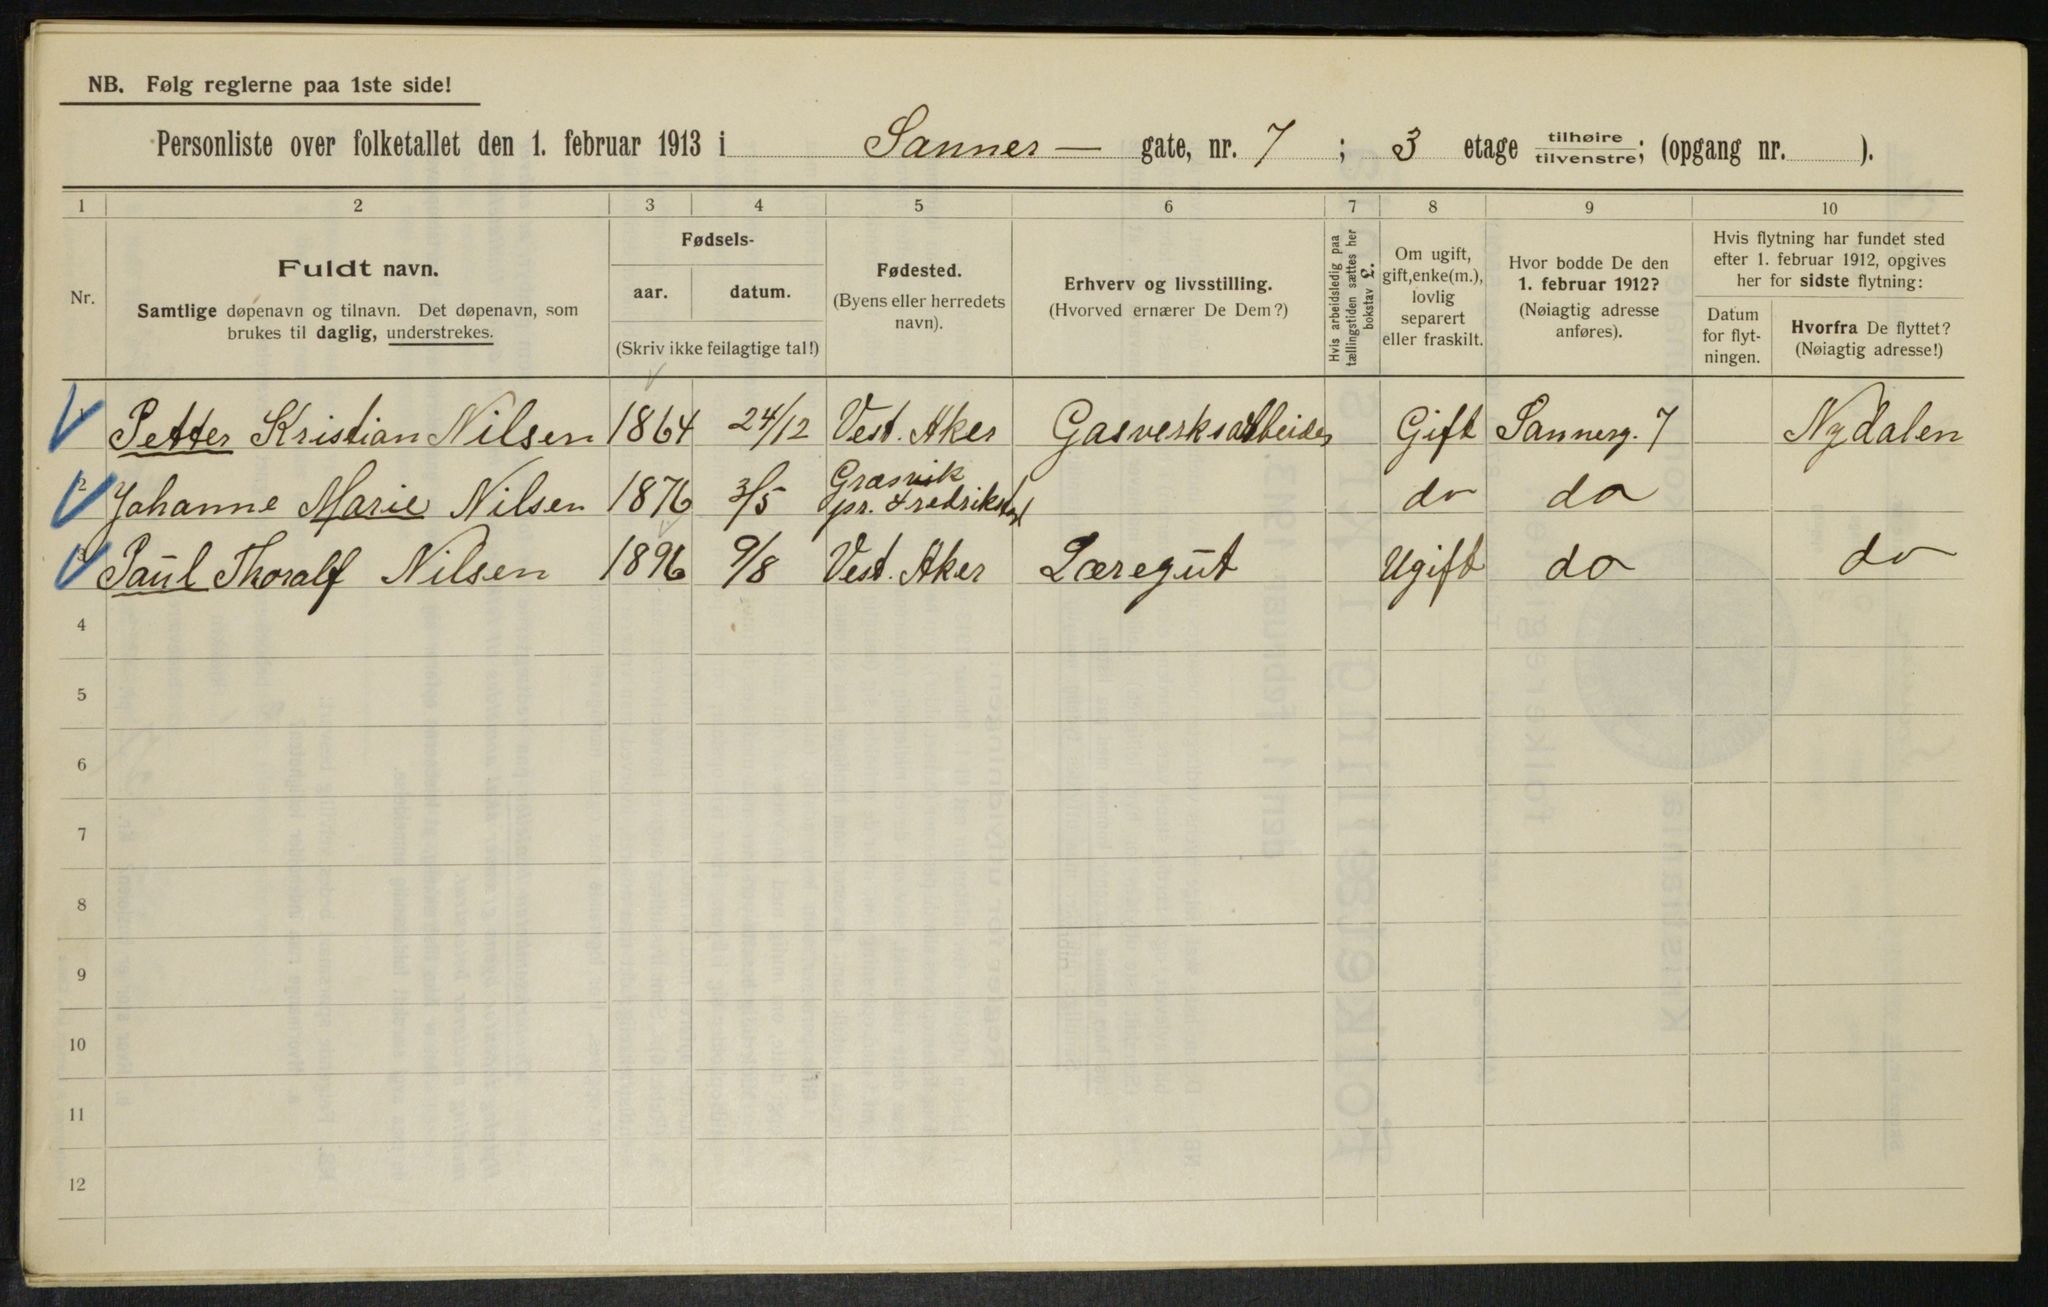 NB. Følg reglerne paa 1ste side!
Personliste over folketallet den 1. februar 1913 i Sannes — gate, nr. 7 ; 3 etage tilhøire tilvenstre; (opgang nr. ).
1 2 3 4 5 6 7 8 9 10
Nr.
Fuldt navn.
Samtlige døpenavn og tilnavn. Det døpenavn, som
brukes til daglig, understrekes.
Fødsels-
aar. datum.
(Skriv ikke feilagtige tal!)
Fødested.
(Byens eller herredets
navn).
Erhverv og livsstilling.
(Hvorved ernærer De Dem?)
Hvis arbeidsledig paa
tællingstiden sættes her
bokstav £.
Om ugift,
gift, enke(m.),
lovlig
separert
eller fraskilt.
Hvor bodde De den
1. februar 1912?
(Nøiagtig adresse
anføres).
Hvis flytning har fundet sted
efter 1. februar 1912, opgives
her for sidste flytning:
Datum
for flyt-
ningen.
Hvorfra De flyttet?
(Nøiagtig adresse!)
1 Petter Kristian Nilsen 1864 24/12 Vest. Aker Gasverksarbeider Gift Sannerg. 7 Nydalen
2 Johanne Marie Nilsen 1876 3/5 Græsvik pr. Fredrikstad do do
3 Paul Thoralf Nilsen 1896 9/8 Vest. Aker Læregut Ugift do do
4
5
6
7
8
9
10
11
12